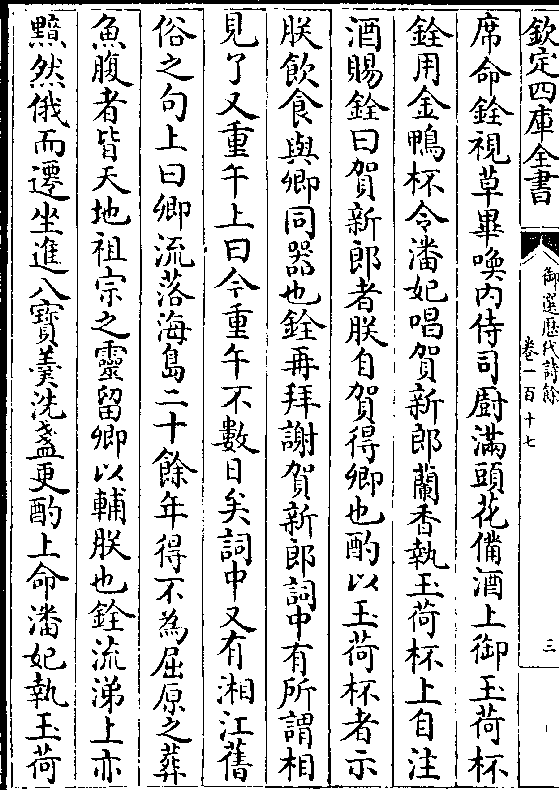 欽定四庫全書
御選歷代詩餘
卷一百十七
三
席命銓視草畢喚内侍司厨滿頭花備酒上御玉荷杯
銓用金鴨杯令潘妃唱賀新郎蘭香執玉荷杯上自注
酒賜銓曰賀新郎者朕自賀得卿也酌以玉荷杯者示
朕飲食與卿同器也銓再拜謝賀新郎詞中有所謂相
見了又重午上曰今重午不數日矣詞中又有湘江舊
俗之句上曰卿流落海島二十餘年得不為屈原之葬
魚腹者皆天地祖宗之靈留卿以輔朕也銓流涕上亦
黯然俄而遷坐進八寶羹洗盞更酌上命潘妃執玉荷